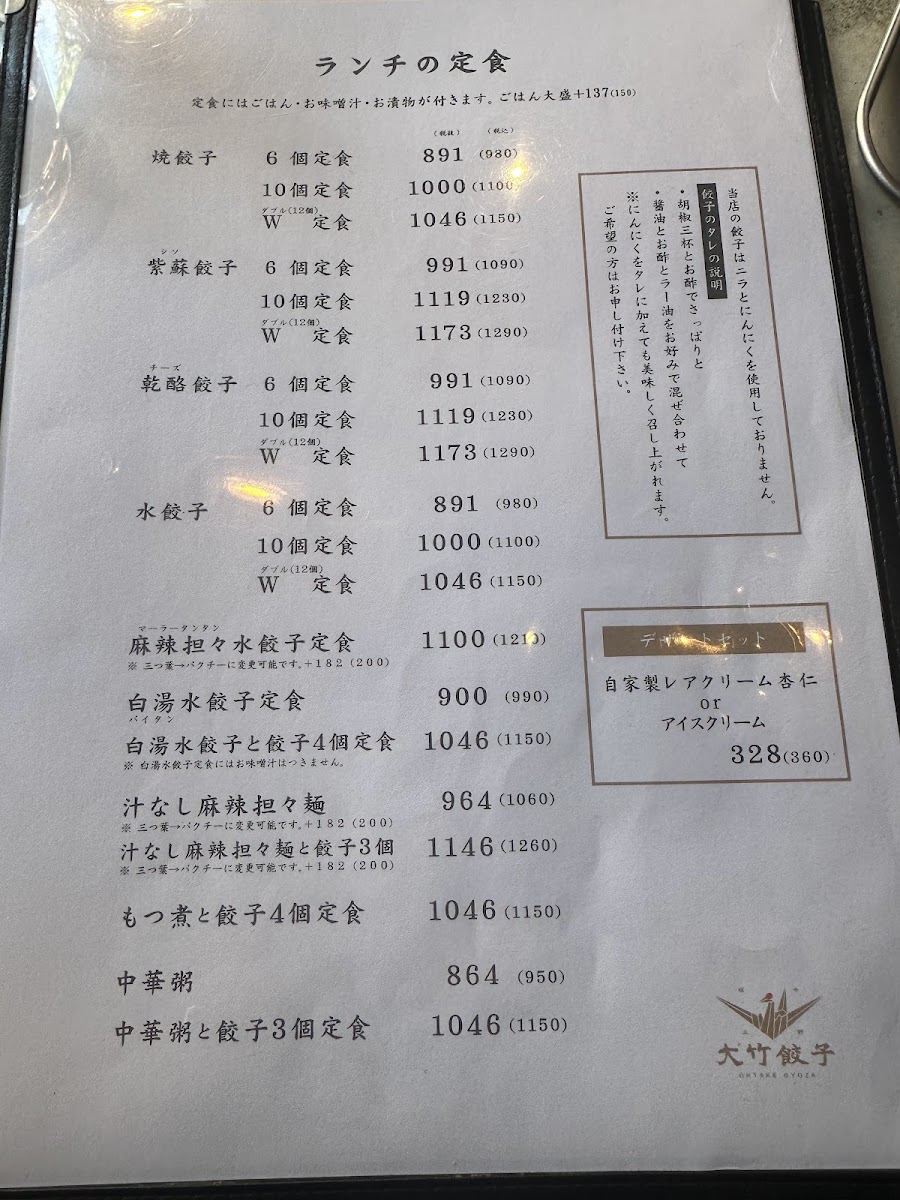 ランチの定食
定食にはごはん・お味噌汁・お漬物が付きます。ごはん大盛+137(150)
(税抜) (税込)
焼餃子 6 個定食 891 (980)
10個定食 1000 (1100)
ダブル(12個)
W 定食 1046 (1150)
シソ
紫蘇餃子 6 個定食 991 (1090)
10個定食 1119 (1230)
ダブル(12個)
W 定食 1173 (1290)
チーズ
乾酪餃子 6 個定食 991 (1090)
10個定食 1119 (1230)
ダブル(12個)
W 定食 1173 (1290)
水餃子 6 個定食 891 (980)
10個定食 1000 (1100)
ダブル(12個)
W 定食 1046 (1150)
マーラータンタン
麻辣担々水餃子定食 1100 (1210)
※ 三つ葉→パクチーに変更可能です。+182 (200)
白湯水餃子定食 900 (990)
パイタン
白湯水餃子と餃子4個定食 1046 (1150)
※ 白湯水餃子定食にはお味噌汁はつきません。
汁なし麻辣担々麺 964 (1060)
※ 三つ葉→パクチーに変更可能です。+182 (200)
汁なし麻辣担々麺と餃子3個 1146 (1260)
※ 三つ葉→パクチーに変更可能です。+182 (200)
もつ煮と餃子4個定食 1046 (1150)
中華粥 864 (950)
中華粥と餃子3個定食 1046 (1150)
当店の餃子はニラとにんにくを使用しておりません。
餃子のタレの説明
・胡椒三杯とお酢でさっぱりと
・醤油とお酢とラー油をお好みで混ぜ合わせて
※にんにくをタレに加えても美味しく召し上がれます。
ご希望の方はお申し付け下さい。
デザートセット
自家製レアクリーム杏仁
or
アイスクリーム
328(360)
大竹餃子
OHTAKE GYOZA